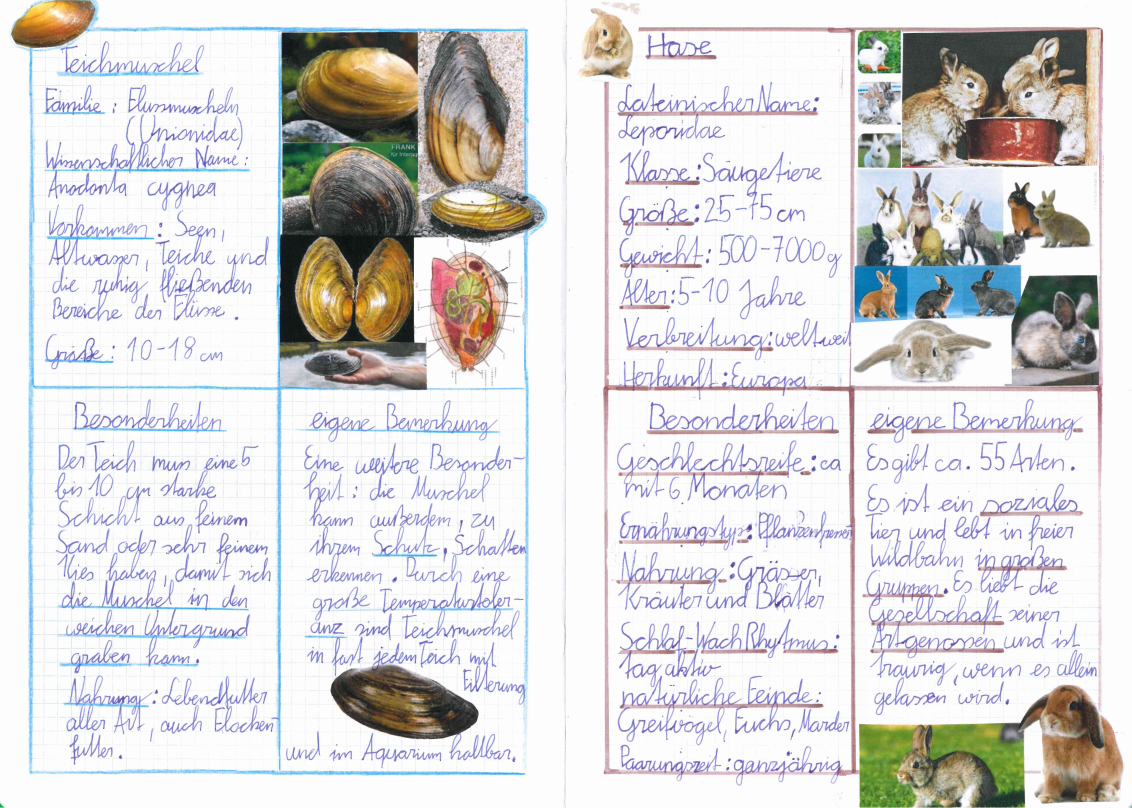 Teichmuschel
Familie: Flussmuscheln
(Unionidae)
Wissenschaftlicher Name:
Anodonta cygnea
Vorkommen: Seen,
Altwasser, Teiche und
die ruhig fließenden
Bereiche der Flüsse.
Größe: 10-18 cm
FRANK
Besonderheiten
Der Teich muss eine 5
bis 10 cm starke
Schicht aus feinem
Sand oder sehr feinem
Kies haben, damit sich
die Muschel in den
weichen Untergrund
graben kann.
Nahrung: Lebendfutter
aller Art, auch Flocken
futter.
eigene Bemerkung
Eine weitere Besonder-
heit: die Muschel
kann außerdem, zu
ihrem Schutz, Schatten
erkennen. Durch eine
große Temperaturtoler-
anz sind Teichmuschel
in fast jedem Teich mit
Filterung
und im Aquarium haltbar.
Hase
Lateinischer Name:
Leporidae
Klasse: Säugetiere
Größe: 25-75 cm
Gewicht: 500-7000 g
Alter: 5-10 Jahre
Verbreitung: weltweit
Herkunft: Europa
Besonderheiten
Geschlechtsreife: ca
mit 6 Monaten
Ernährungstyp: Pflanzenfresser
Nahrung: Gräser,
Kräuter und Blätter
Schlaf-Wach Rhytmus:
tag aktiv
natürliche Feinde:
Greifvögel, Fuchs, Marder
Paarungszeit: ganzjährig
eigene Bemerkung
Es gibt ca. 55 Arten.
Es ist ein soziales
Tier und lebt in freier
Wildbahn in großen
Gruppen. Es liebt die
Gesellschaft seiner
Artgenossen und ist
traurig, wenn es allein
gelassen wird.